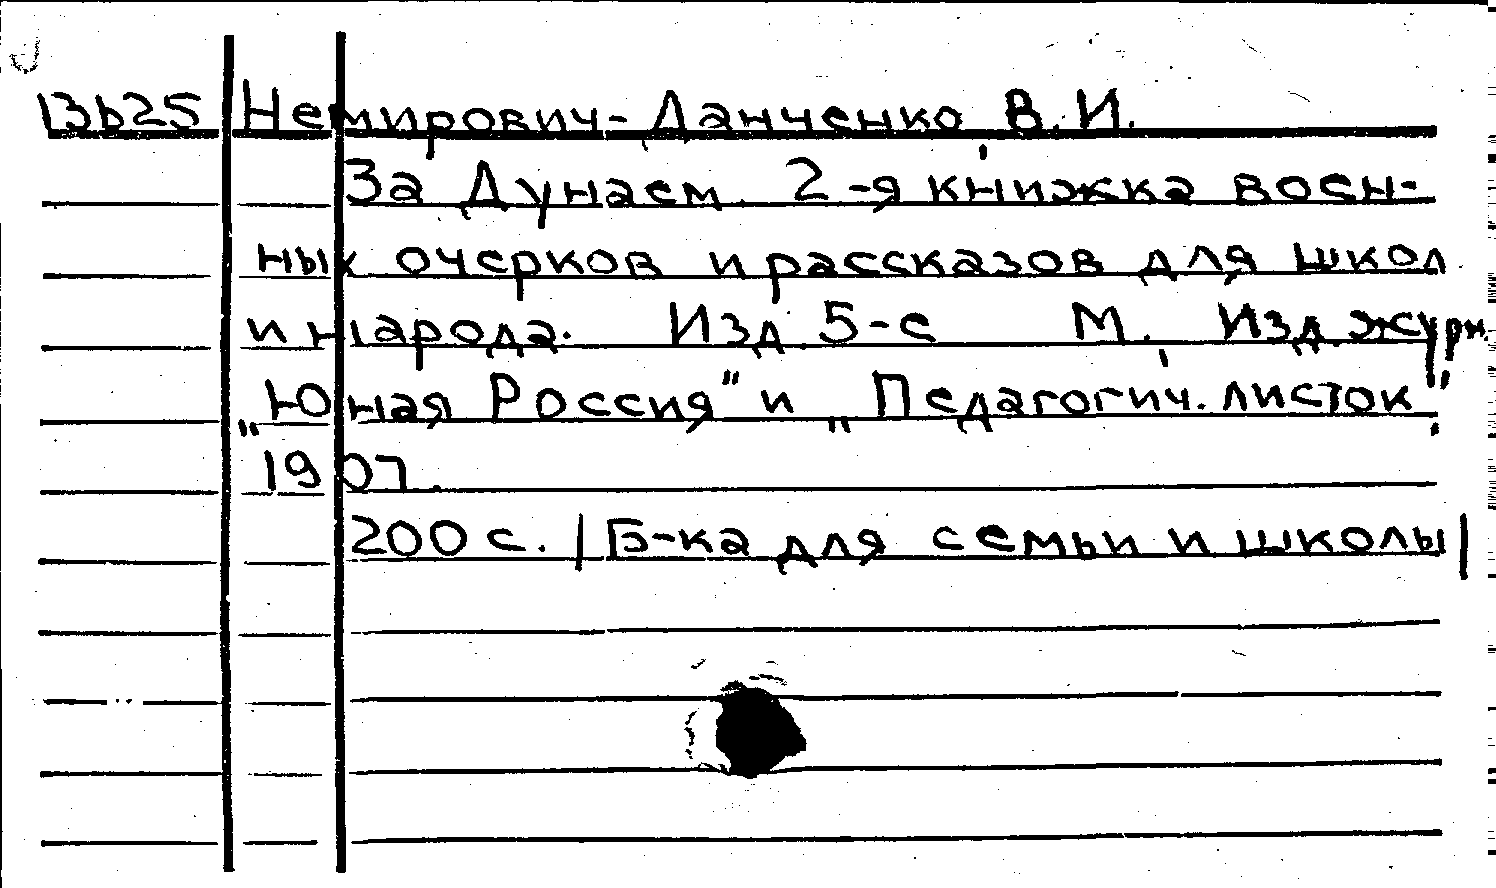 13b25 Немирович-Данченко В.И.
За Дунаем. 2-я книжка воен-
ных очерков и рассказов для школ
и народа. Изд. 5-е М., Изд. журн.
„Юная Россия" и „Педагогич. листок",
1907.
200 с. |Б-ка для семьи и школы|